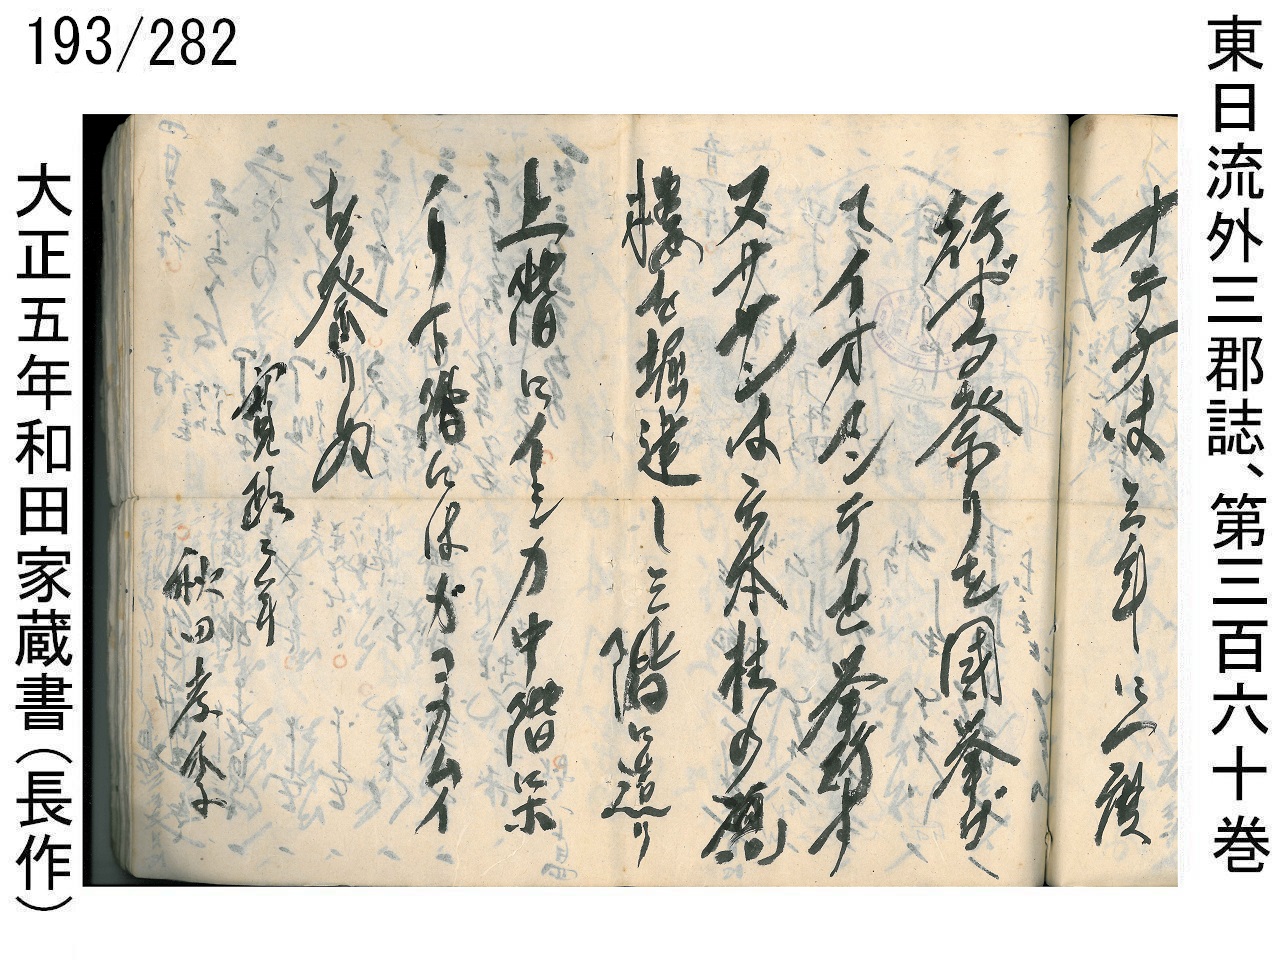 193/282
東日流外三郡誌、第三百六十巻
オテナは三年に一度
行ずる祭りを國挙げ
てイオマンテと挙行す
又サンは六本柱の
楼を掘建し三階に造り
上階にイシカ中階にホ
ノリ下階にはガコカムイ
を祭りぬ
寛政二年
秋田孝季
大正五年和田家蔵書（長作）